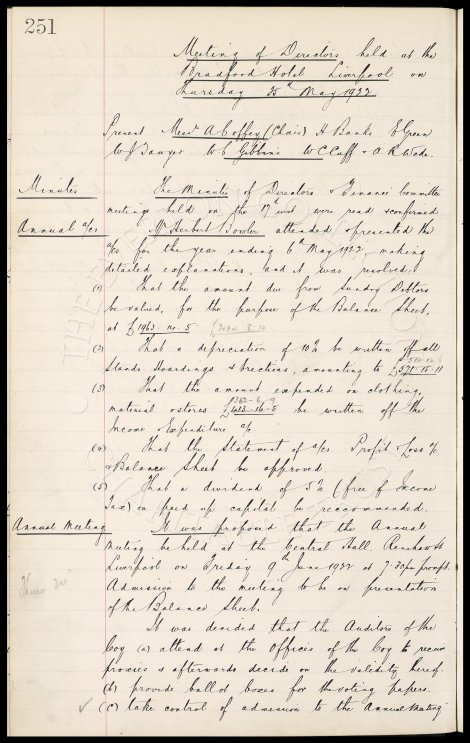 251
Meeting of Directors held at the
Bradford Hotel Liverpool on
Thursday 25th May 1922
Present Messrs A Coffey (Chair) H Banks E Green
W J Sawyer W E Gibbins W C Cuff & A R Wade.
Minutes The Minutes of Directors & Finance Committee
meetings held on the 17th inst were read & confirmed
Annual a/cs Mr Herbert Bowler attended & presented the
a/cs for the year ending 6th May 1922, making
detailed explanations, and it was resolved:
(1) That the amount due from Sundry Debtors
be valued, for the purpose of the Balance Sheet,
at £1963-110-5 £2034. 8. 10
(2) That a depreciation of 10% be written off all
Stands Hoardings & Erections, amounting to £571-15-11
(3) That the amount expended on clothing,
1362-6-9
material & stores £ be written off the
Income & Expenditure a/c.
(4) That the Statement of a/cs Profit & Loss a/c
& Balance Sheet be approved.
(5) That a dividend of 5% (free of Income
Tax) on paid up capital be recommended.
Annual Meeting It was proposed that the Annual
Meeting be held at the Central Hall. Renshaw St
Liverpool on Friday 9th June 1922 at 7.30pm prompt
Admission to the meeting to be on presentation
of the Balance Sheet.
It was decided that the Auditors of the
Coy (a) attend at the Offices of the Coy to receive
proxies & afterwards decide on the validity hereof
(b) provide ballot boxes for the voting papers.
(c) take control of admission to the Annual Meeting